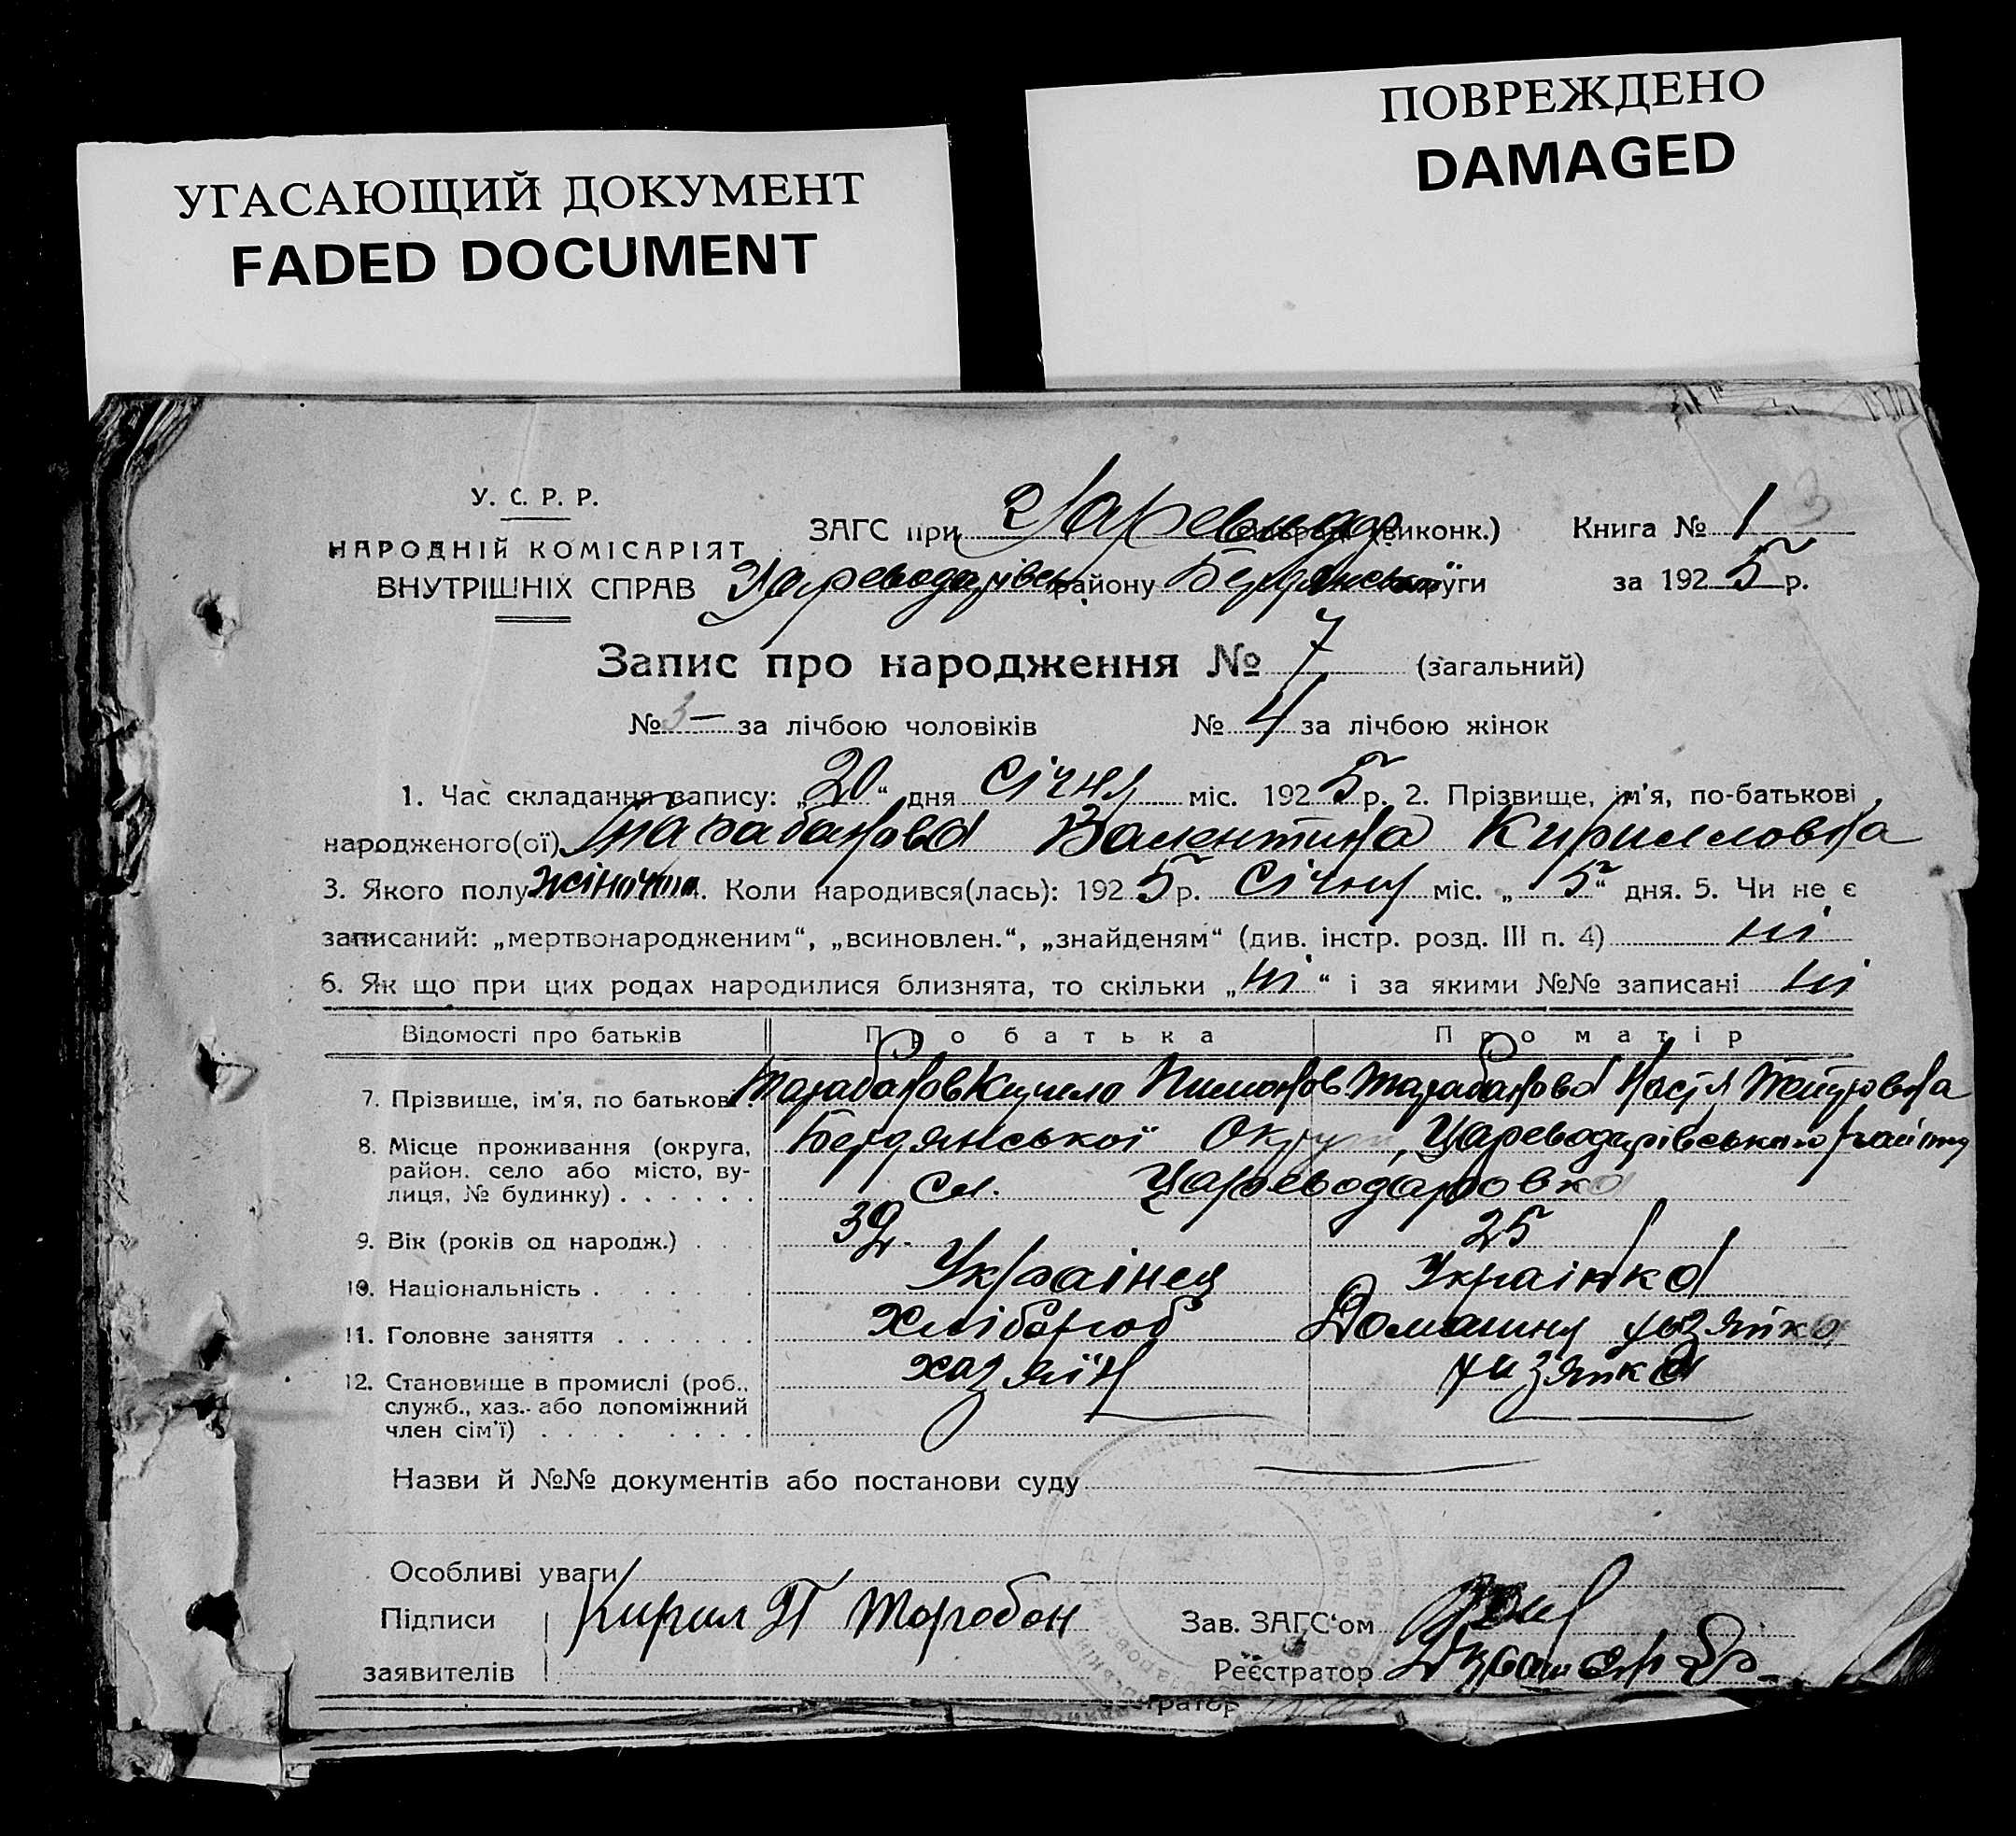 УГАСАЮЩИЙ ДОКУМЕНТ
FADED DOCUMENT
ПОВРЕЖДЕНО
DAMAGED
У. С. Р. Р.
НАРОДНІЙ КОМІСАРІЯТ
ВНУТРІШНІХ СПРАВ
ЗАГС при Цареводар (виконк.) Книга № 1 3
Цареводарівськ району Бердянської округи за 1925 р.
Запис про народження № 7 (загальний)
№ 3 — за лічбою чоловіків № 4 за лічбою жінок
1. Час складання запису: „20“ дня Січня міс. 1925 р. 2. Прізвище, ім'я, по-батькові
народженого(ої) Тарабанова Валентина Кирилловна
3. Якого полу жіночка 4. Коли народився(лась): 1925 р. Січня міс. „5“ дня. 5. Чи не є
записаний: „мертвонародженим“, „всиновлен.“, „знайденям“ (див. інстр. розд. III п. 4) ні
6. Як що при цих родах народилися близнята, то скільки „ні“ і за якими №№ записані ні
Відомості про батьків Про батька Про матір
7. Прізвище, ім'я, по батькові. Тарабанов Кирило Тарабанова Настя Петровна
8. Місце проживання (округа, Бердянської Округи, Цареводарівського району
район. село або місто, ву-
лиця, № будинку) . . . . . . сл. Царьводаровка
9. Вік (років од народж.) . . . 32. 25
10. Національність . . . . . . Українец Українка
11. Головне заняття . . . . . . Хлібороб Домашня хозяйка
12. Становище в промислі (роб., хазяїн хазяйка
служб., хаз.- або допоміжний
член сім'ї) . . . . . . . .
Назви й №№ документів або постанови суду
Особливі уваги
Підписи Кирил П Торобон Зав. ЗАГС'ом
заявителів Реєстратор
тратор